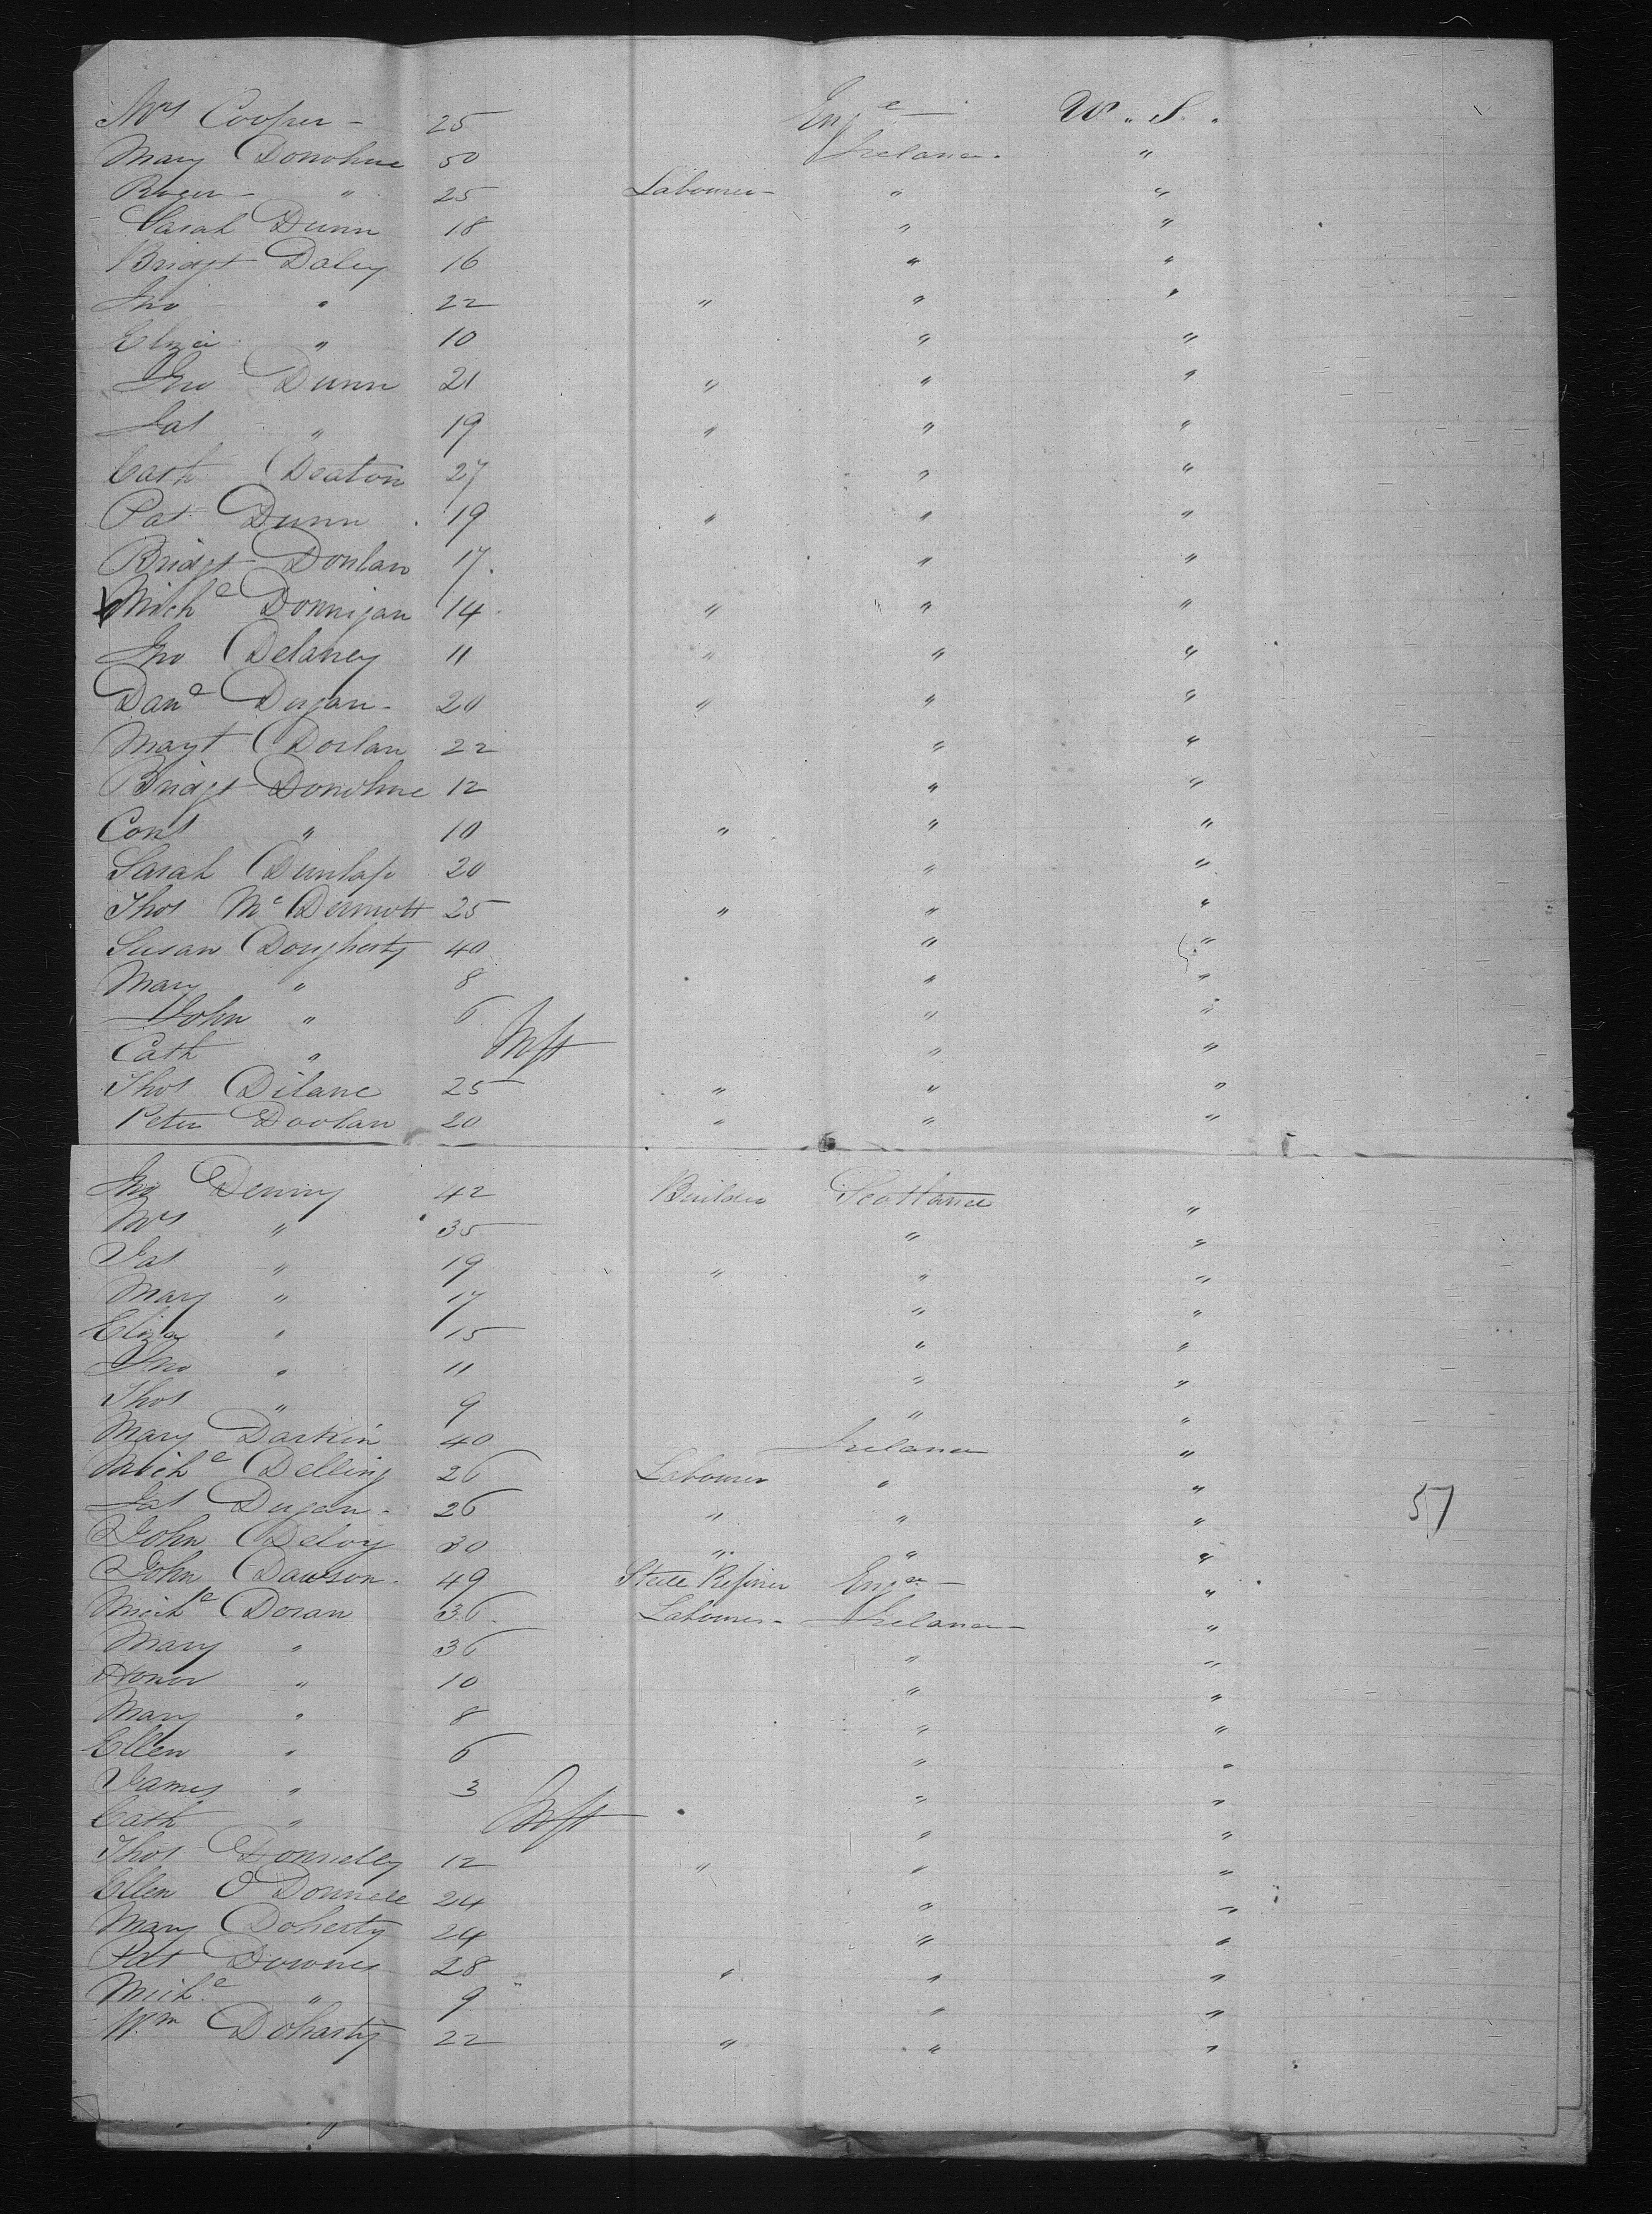 Mrs Cooper - 25 Engd W. S.
Mary Donohue 50 Ireland "
Roger " 25 Labourer " "
Sarah Dunn 18 " "
Bridgt Daley 16 " "
Jno " 22 " " "
Eliza " 10 " "
Jno Dunn 21 " " "
Jas " 19 " " "
Cath Deaton 27 " "
Pat Dunn 19 " " "
Bridgt Donlan 17 " "
Michl Donnigan 14 " " "
Jno Delaney 11 " " "
Danl Dugan - 20 " " "
Magt Dorlan 22 " "
Bridgt Donohue 12 " "
Cons " 10 " " "
Sarah Dunlap 20 " "
Thos McDermott 25 " " "
Susan Dougherty 40 " "
Mary " 8 " "
John " 6 " "
Cath " Inft " "
Thos Dilane 25 " " "
Peter Doolan 20 " " "
Jno Denny 42 Builder Scotland "
Mrs " 35 " "
Jas " 19 " " "
Mary " 17 " "
Eliza " 15 " "
Jno " 11 " "
Thos " 9 " "
Mary Darkin 40 Ireland "
Michl Delling 26 Labourer " "
Jas Dugan - 26 " " "
John Deloy 30 " " "
John Dawson 49 Steel Refiner Engd "
Michl Doran 36 Labourer - Ireland "
Mary " 36 " "
Honor " 10 " "
Mary " 8 " "
Ellen " 6 " "
James " 3 " "
Cath " Inft " "
Thos Donnelly 12 " " "
Ellen O'Donnell 24 " "
Mary Doherty 24 " "
Pat Downes 28 " " "
Michl " 9 " "
Wm Doharty 22 " " "
57